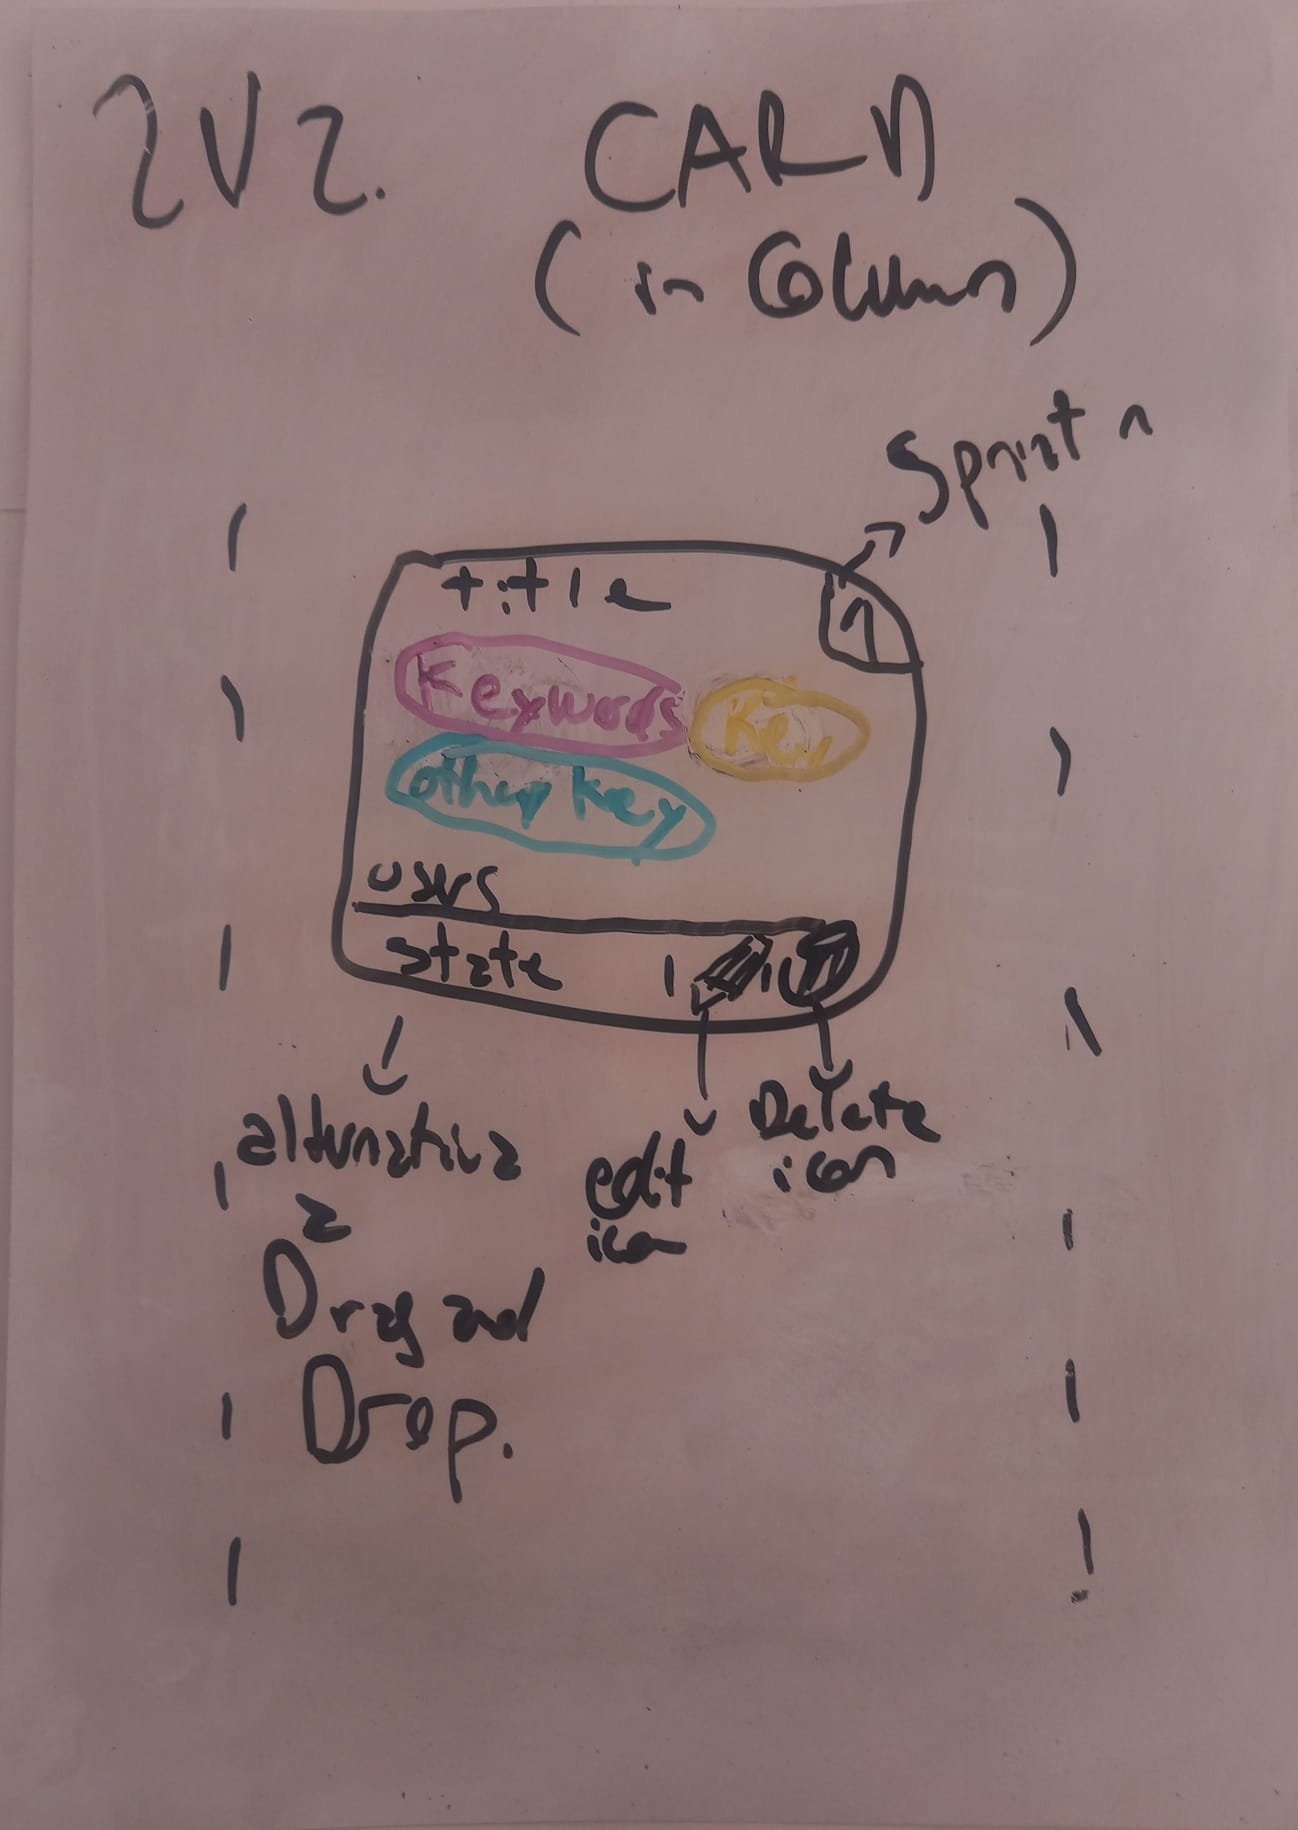 2V2. CARD
(in Column)
Sprint n
title
1
Keywords
Key
other Key
users
state
alternativa
a
Drag and
Drop.
edit
icon
Delete
icon